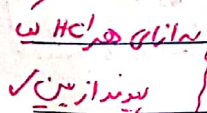 به ازای هر HCl یک
پیوند از بین